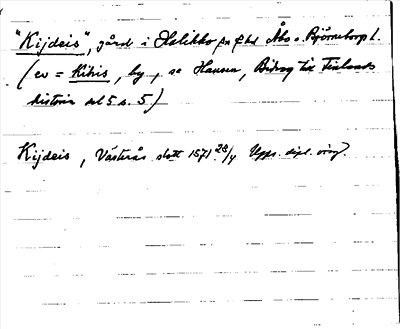 "Kijdeis", gård i Halikko sn f.d. Åbo o. Björneborg l.
(ev = Kihis, by, se Hausen, Bidrag till Finlands
historia del 5 s. 5)
Kijdeis, Västerås slott 1571 28/4 Upps. dipl.